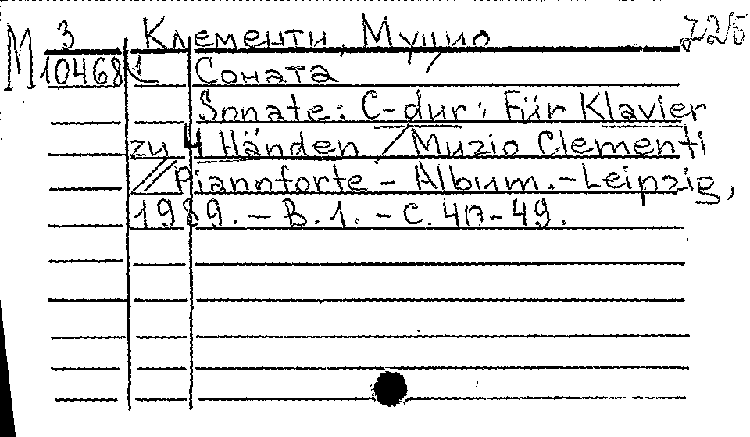 М 3 Клементи, Муцио 725
104681 Соната
Sonate: C-dur: Für Klavier
zu 4 Händen / Muzio Clementi
// Piannforte - Album. - Leipzig,
1989. - B. 1. - С. 40-49.